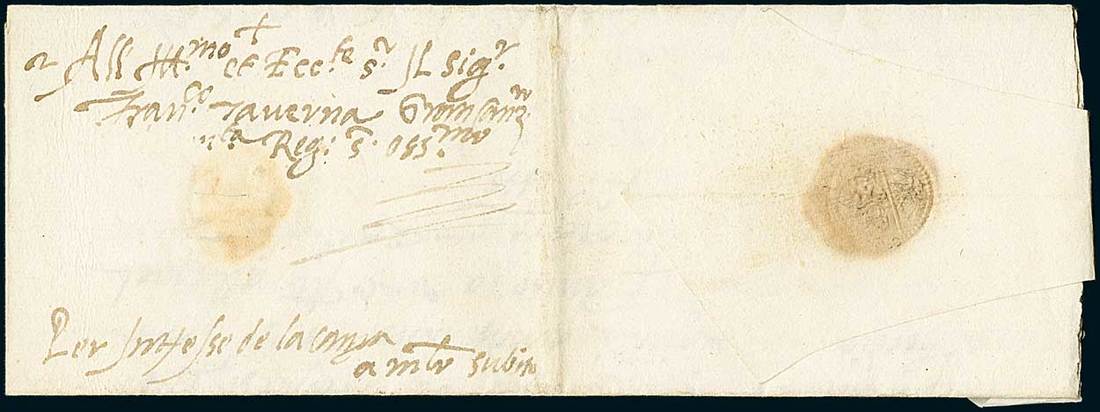 All Ill.mo et Ecc.te s.r IL sig.r
Fran.co Taverna Gran Canz.ro
Reg.a s.r oss.mo
Per Interesse de la Camera
a m.lo subito